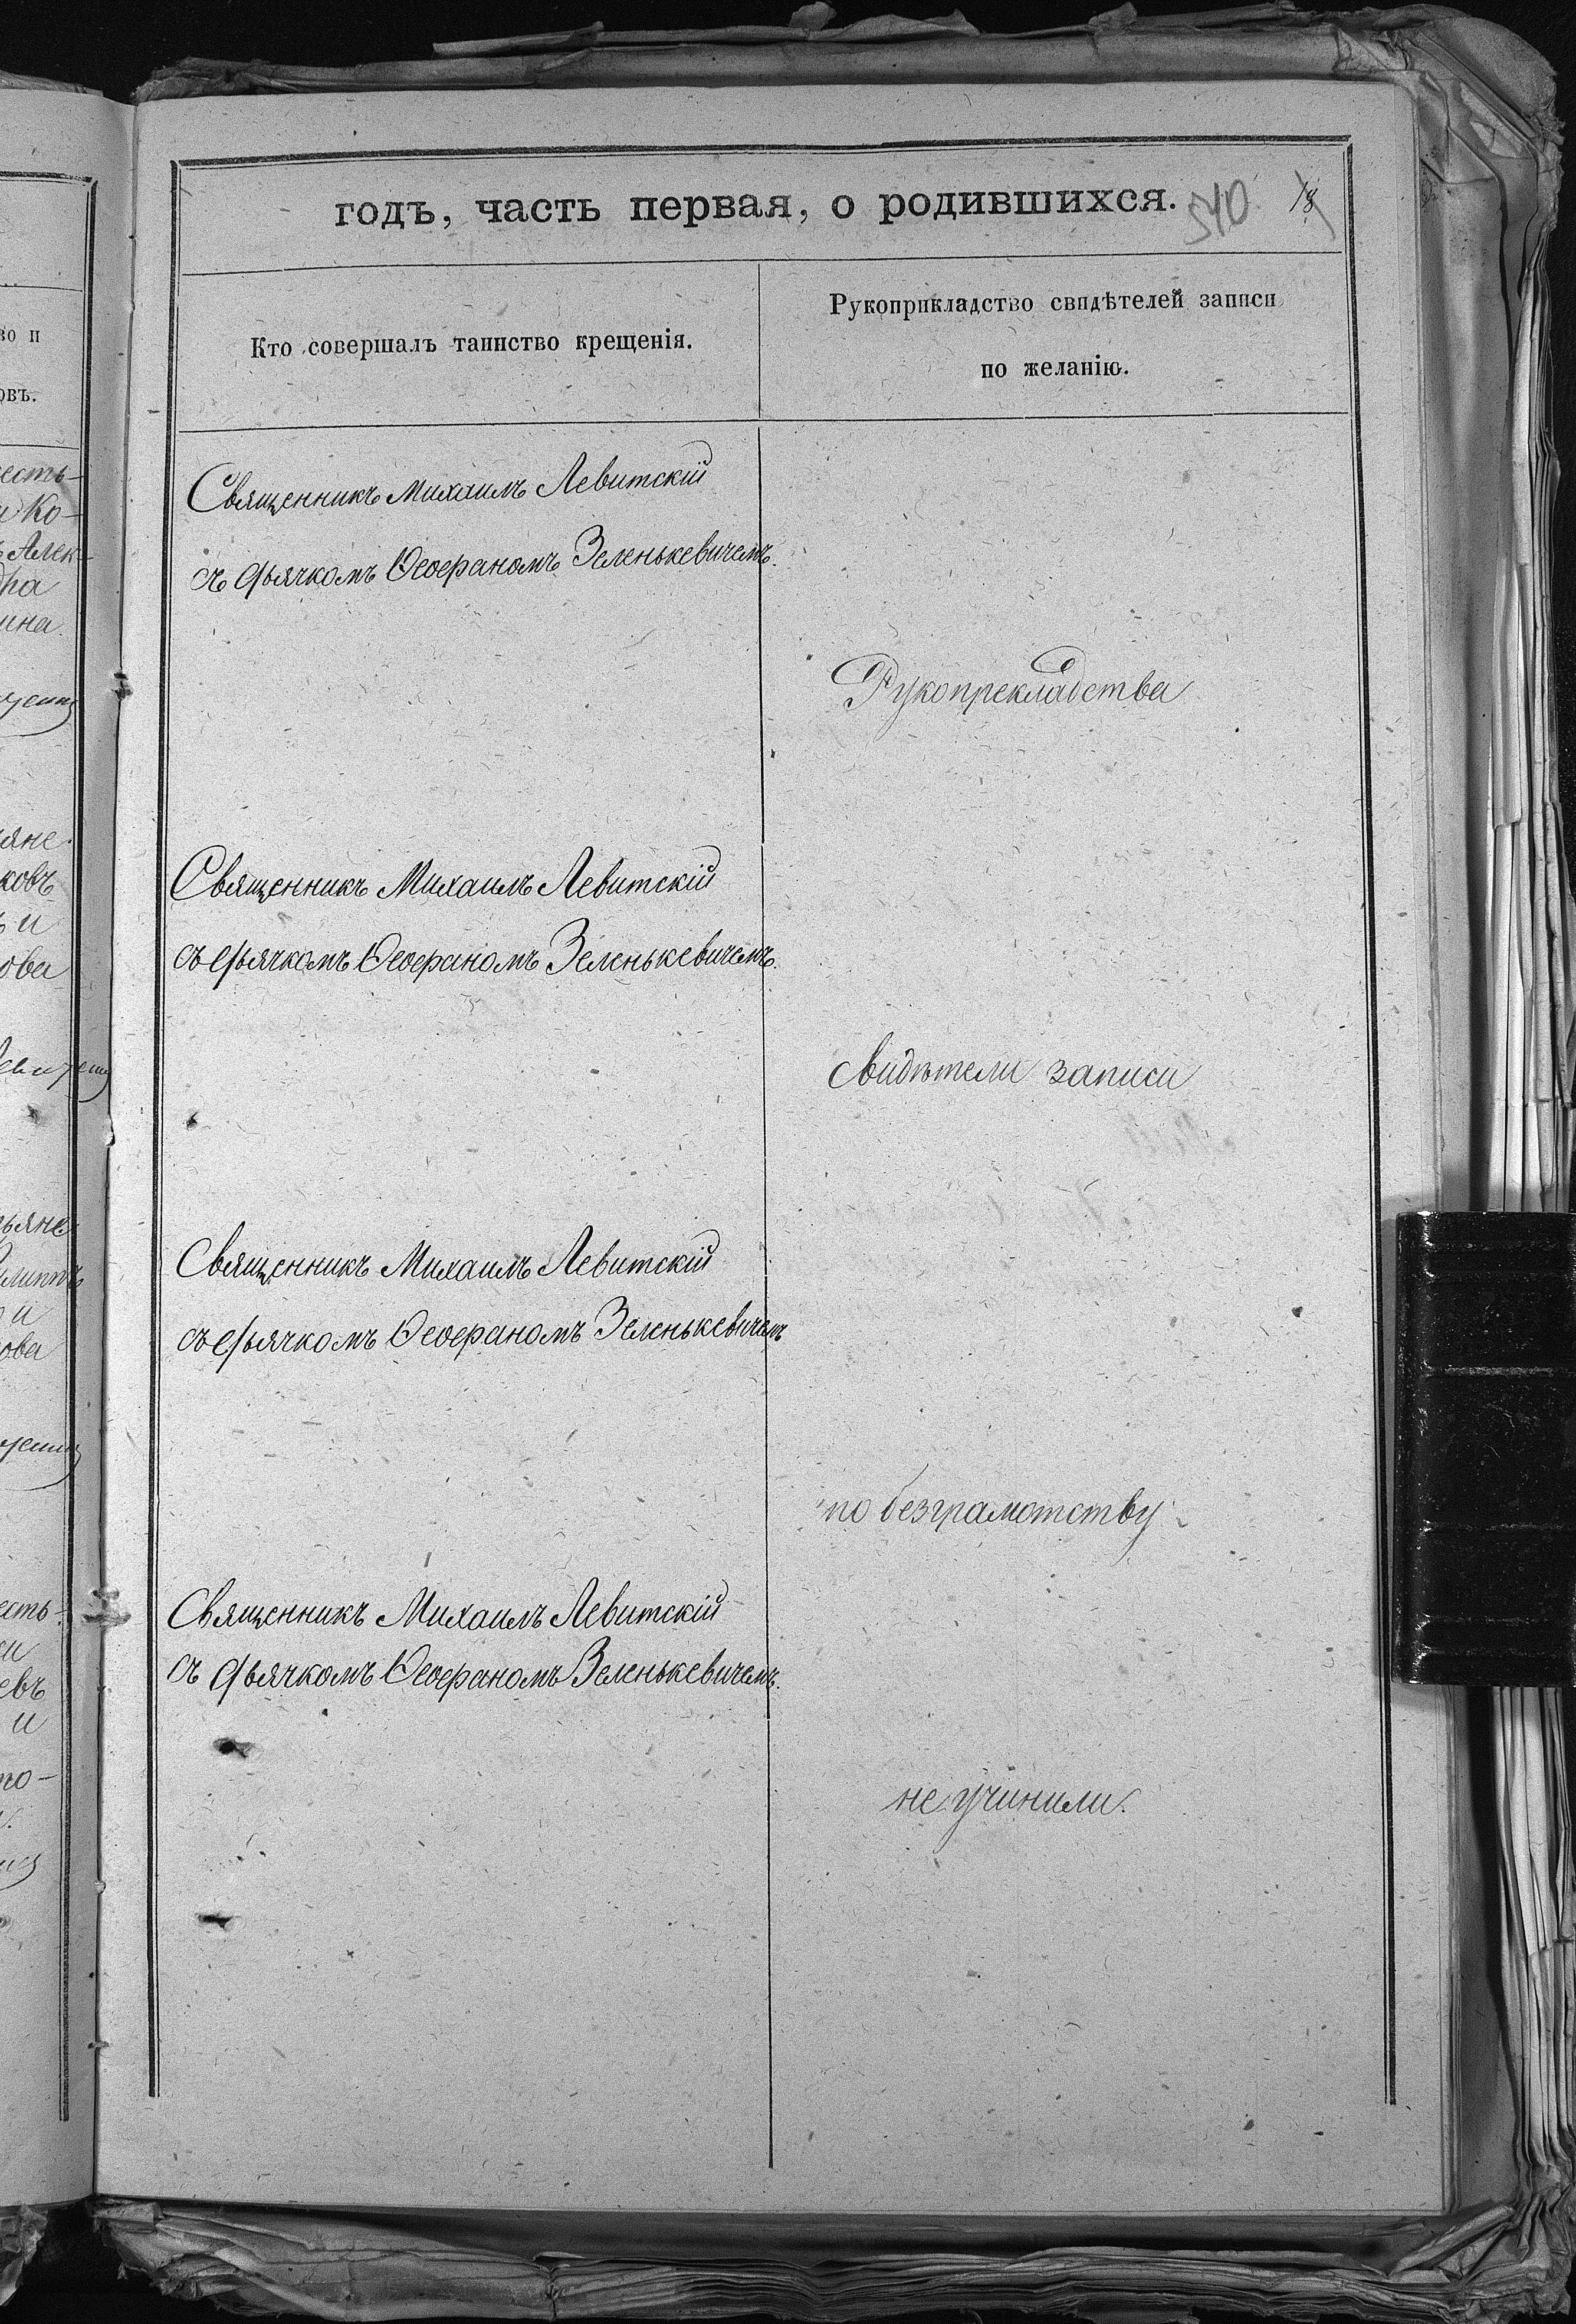 годъ, часть первая, о родившихся. 540 18
Кто совершалъ таинство крещенія.
Рукоприкладство свидѣтелей записи
по желанію.
Священникъ Михаилъ Левитскій
съ дьячкомъ Ѳеофаномъ Зеленькевичемъ.
Рукопрекладства
Священникъ Михаилъ Левитскій
съ дьячкомъ Ѳеофаномъ Зеленькевичемъ.
свидѣтели записи
Священникъ Михаилъ Левитскій
съ дьячкомъ Ѳеофаномъ Зеленькевичемъ
по безграмотству
Священникъ Михаилъ Левитскій
съ дьячкомъ Ѳеофаномъ Зеленькевичемъ.
не учинили.